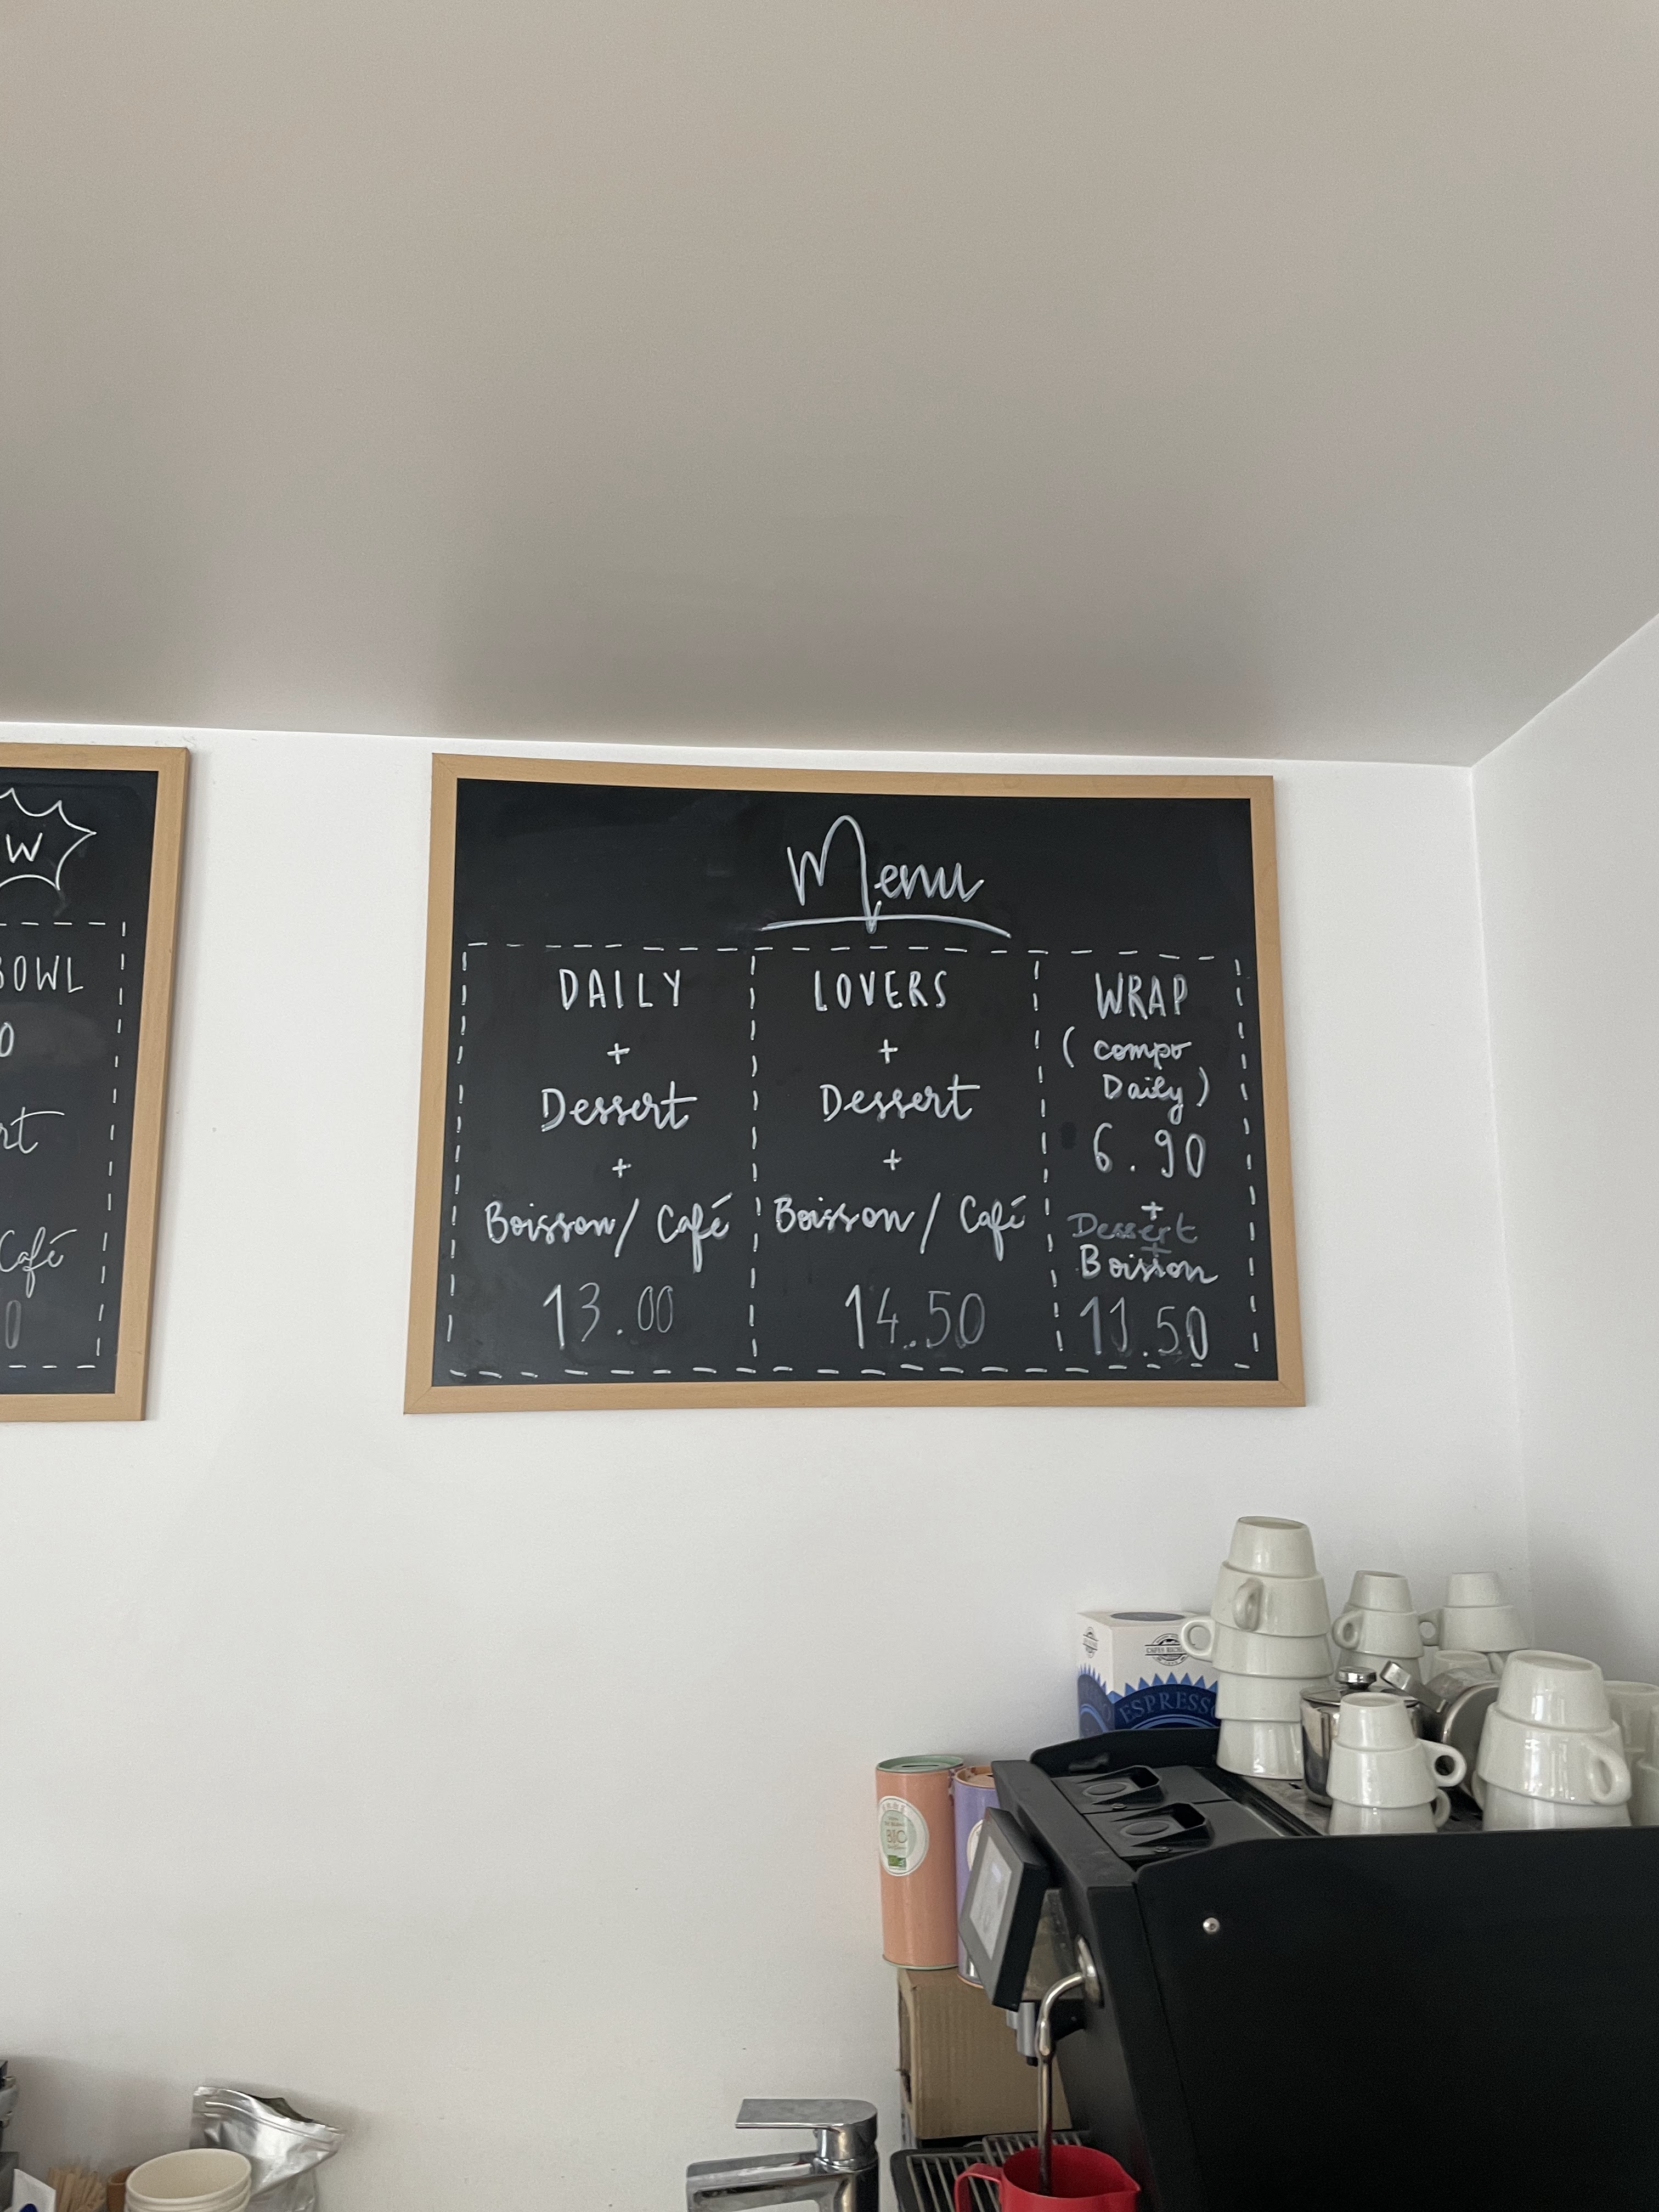 W
BOWL
Café
Menu
DAILY
+
Dessert
+
Boisson / Café
13.00
LOVERS
+
Dessert
+
Boisson / Café
14.50
WRAP
( compo
Daily )
6.90
+
Dessert
+
Boisson
11.50
ESPRESSO
BIO